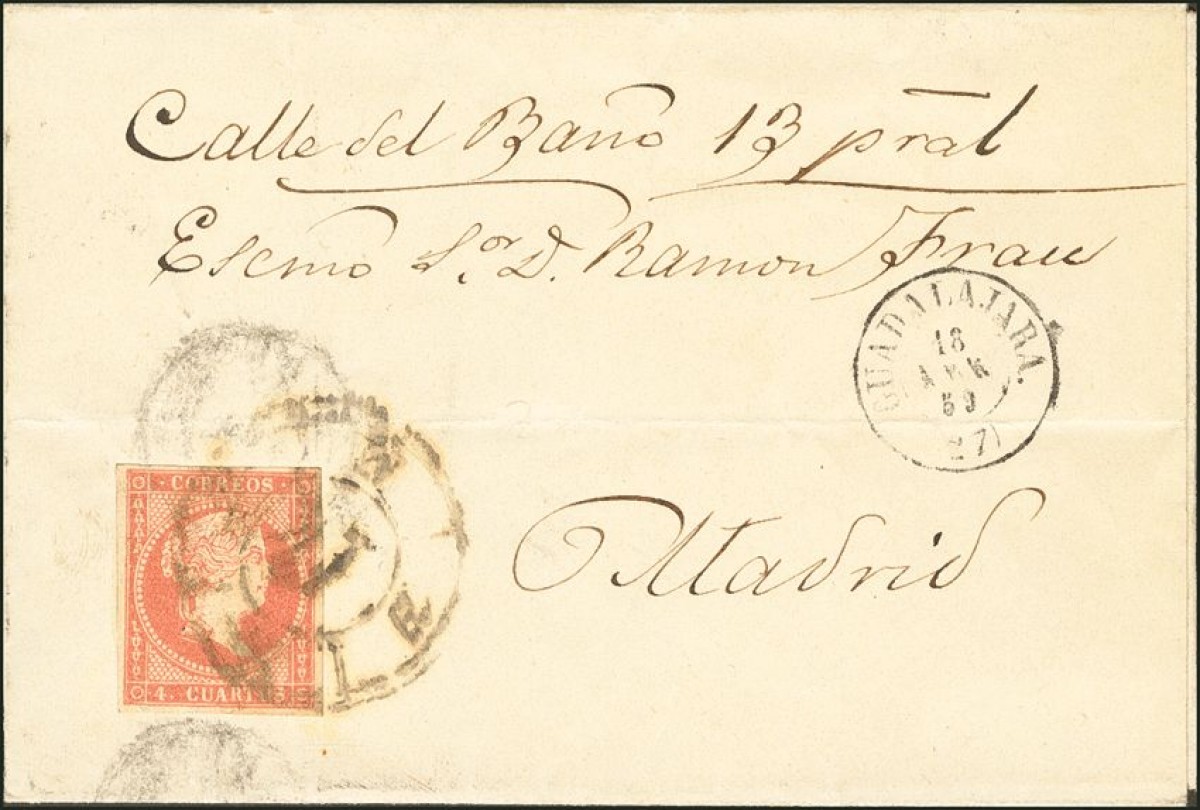 Calle del Baño 13 pral
Escmo Sor. D. Ramon Frau
GUADALAJARA.
18
ABR
59
(27)
Madrid
CORREOS
4. CUARTOS